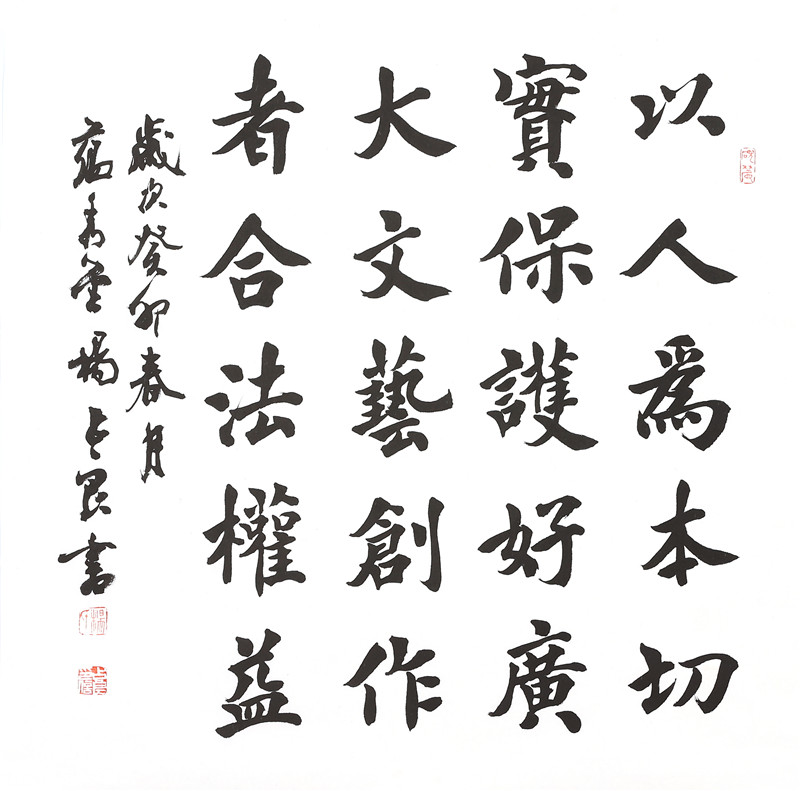 以人為本切
實保護好廣
大文藝創作
者合法權益
歲次癸卯春月
蕴秀堂楊占君書